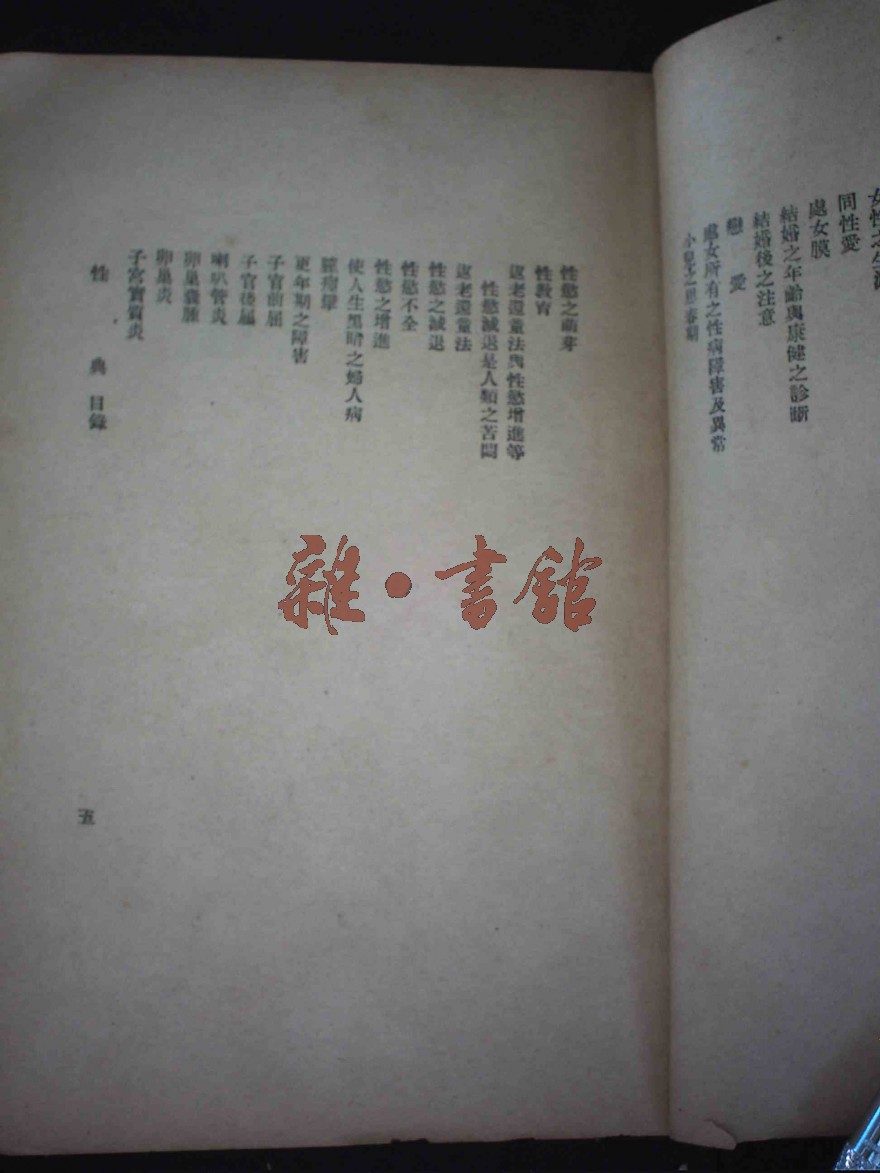 同性愛
處女膜
結婚之年齡與康健之診斷
結婚後之注意
戀 愛
處女所有之性病障害及異常
性慾之萌芽
性教育
返老還童法與性慾增進等
性慾減退是人類之苦悶
返老還童法
性慾之減退
性慾不全
性慾之增進
使人生黑暗之婦人病
膣痙攣
更年期之障害
子宮前屈
子宮後屈
喇叭管炎
卵巢囊腫
卵巢炎
子宮實質炎
性 典 目錄
五
雜·書館